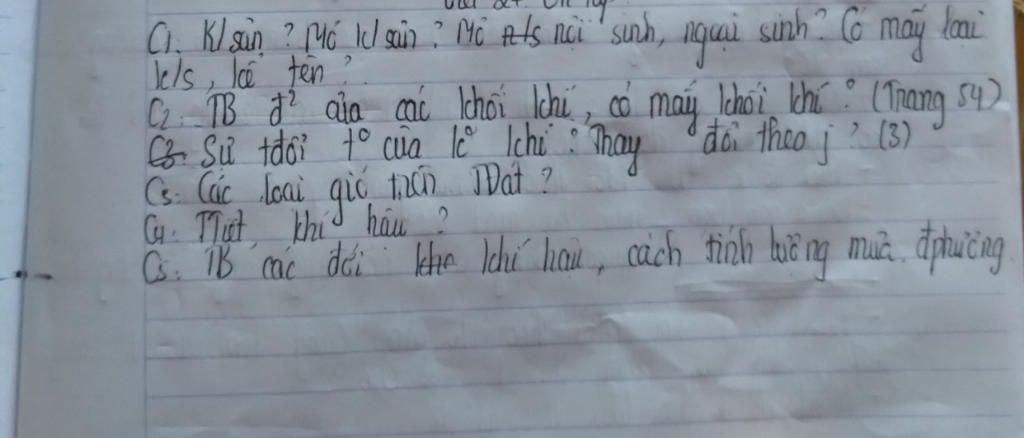 C1. K/sản ? Mỏ k/sản ? Mỏ nội sinh, ngoại sinh? Có mấy loại
k/s, kể tên ?
C2. TB đ² của các khối khí, có mấy khối khí ? (Trang 54)
Sự tđổi t° của k° khí ? Thay đổi theo j ? (3)
C3. Các loại gió trên TĐất ?
C4. Tiết khí hậu ?
C5. TB các đới khí hậu, cách tính lượng mưa đphương